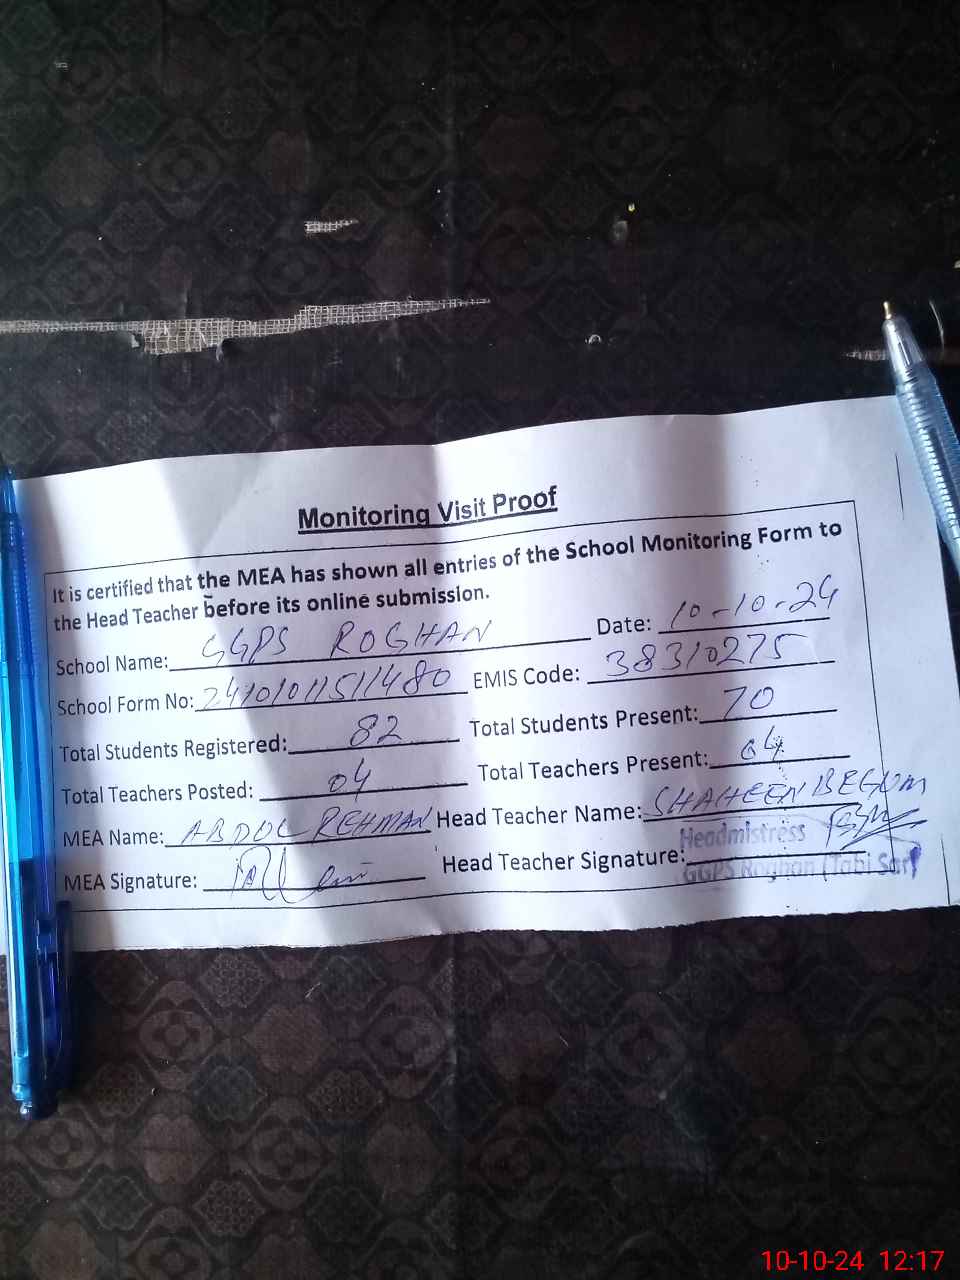 Monitoring Visit Proof
It is certified that the MEA has shown all entries of the School Monitoring Form to
the Head Teacher before its online submission.
School Name: GGPS ROGHAN Date: 10-10-24
School Form No: 241010115111480 EMIS Code: 38310275
Total Students Registered: 82 Total Students Present: 70
Total Teachers Posted: 04 Total Teachers Present: 04
MEA Name: ABDUL REHMAN Head Teacher Name: SHAHEEN BEGUM
MEA Signature: Head Teacher Signature:
Headmistress
GGPS Roghan (Tabi Sar)
10-10-24 12:17